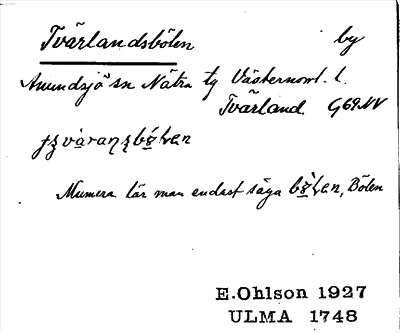 Tvärlandsbölen by
Anundsjö sn Nätra tg Västernorrl. l.
Tvärland. G69NV
Numera lär man endast säga Bölen
E. Ohlson 1927
ULMA 1748